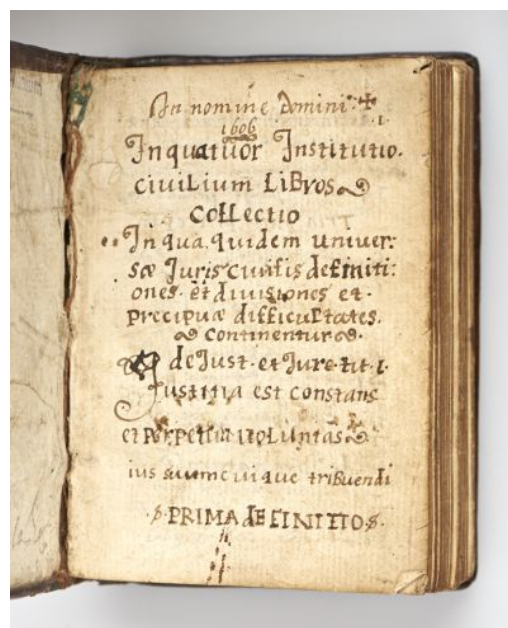 In nomine Domini: ✝
1606 1.
In quatuor Institutio.
civilium Libros
collectio
In qua quidem univer:
sæ Juris civilis definiti:
ones et divisiones et
precipuæ difficultates.
continentur
de Just. et Jure tit. 1.
Justitia est constans
et perpetua voluntas
ius suum cuique tribuendi
.S. PRIMA dEFINITIO .S.